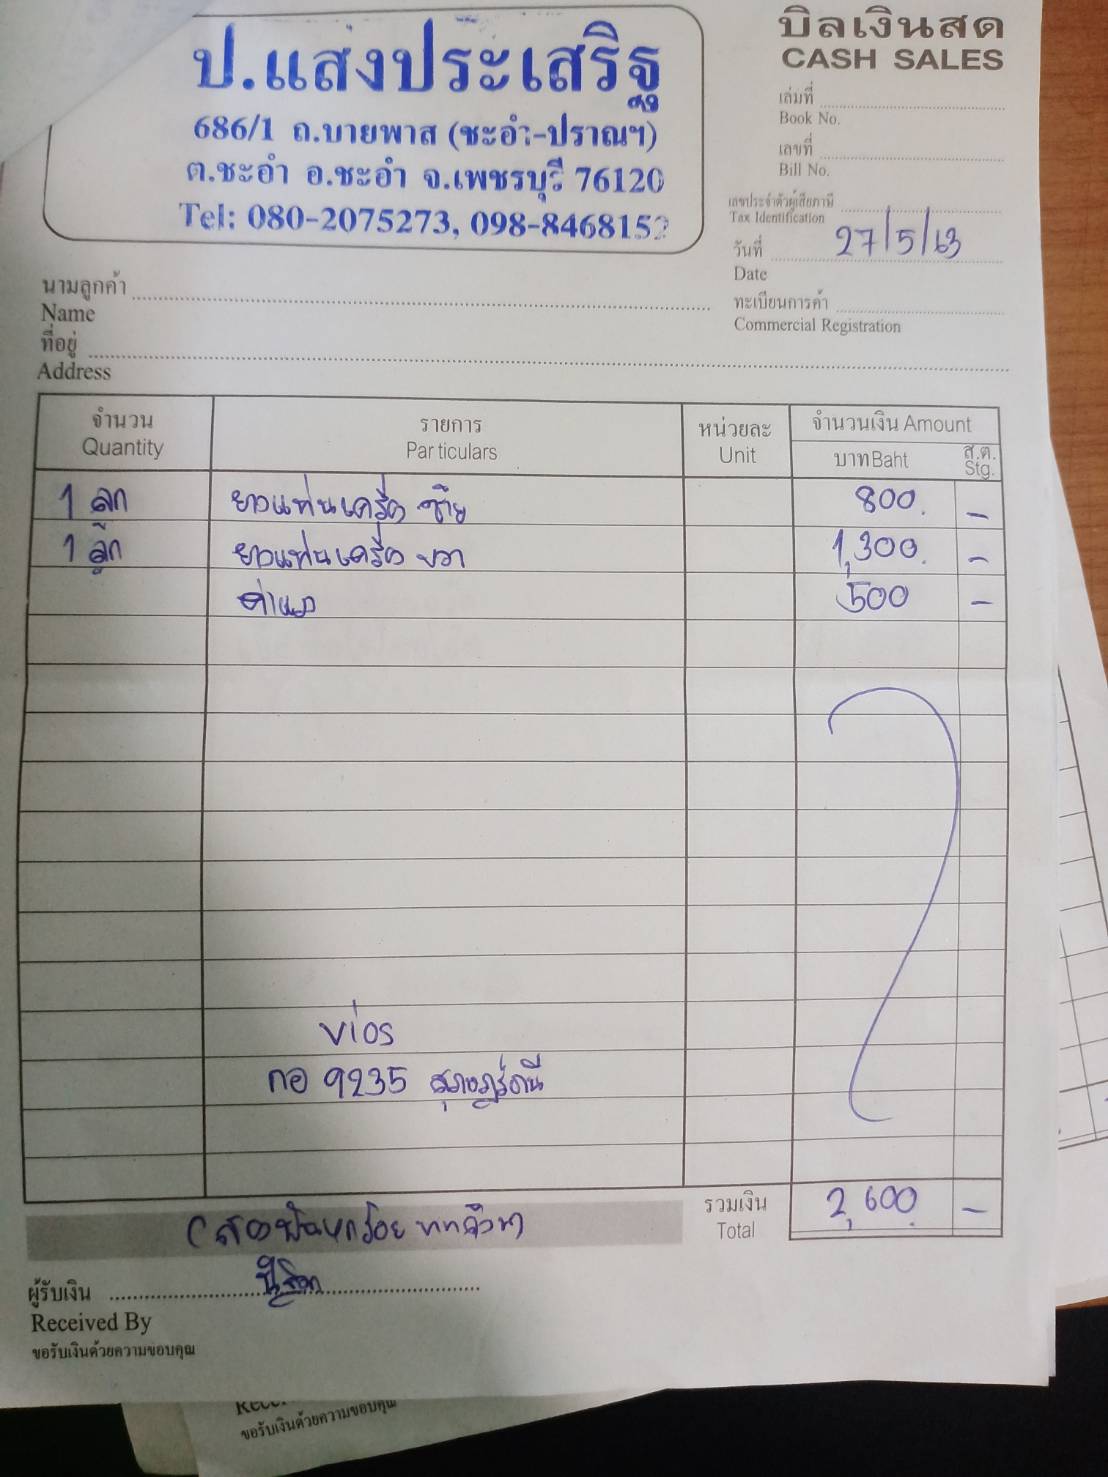 ป.แสงประเสริฐ
686/1 ถ.บายพาส (ชะอำ-ปราณฯ)
ต.ชะอำ อ.ชะอำ จ.เพชรบุรี 76120
Tel: 080-2075273, 098-8468152
บิลเงินสด
CASH SALES
เล่มที่
Book No.
เลขที่
Bill No.
เลขประจำตัวผู้เสียภาษี
Tax Identification
วันที่ 27/5/63
Date
นามลูกค้า
Name
ทะเบียนการค้า
Commercial Registration
ที่อยู่
Address
จำนวน รายการ หน่วยละ จำนวนเงิน Amount
Quantity Particulars Unit บาท Baht ส.ต. Stg.
1 ลูก ยางแท่นเครื่อง ซ้าย 800. -
1 ลูก ยางแท่นเครื่อง ขวา 1,300. -
ค่าแรง 500 -
vios
กอ 9235 สุราษฎร์ธานี
รวมเงิน 2,600. -
Total
(สองพันหกร้อยบาทถ้วน)
ผู้รับเงิน
Received By
ขอรับเงินด้วยความขอบคุณ
ขอรับเงินด้วยความขอบคุณ